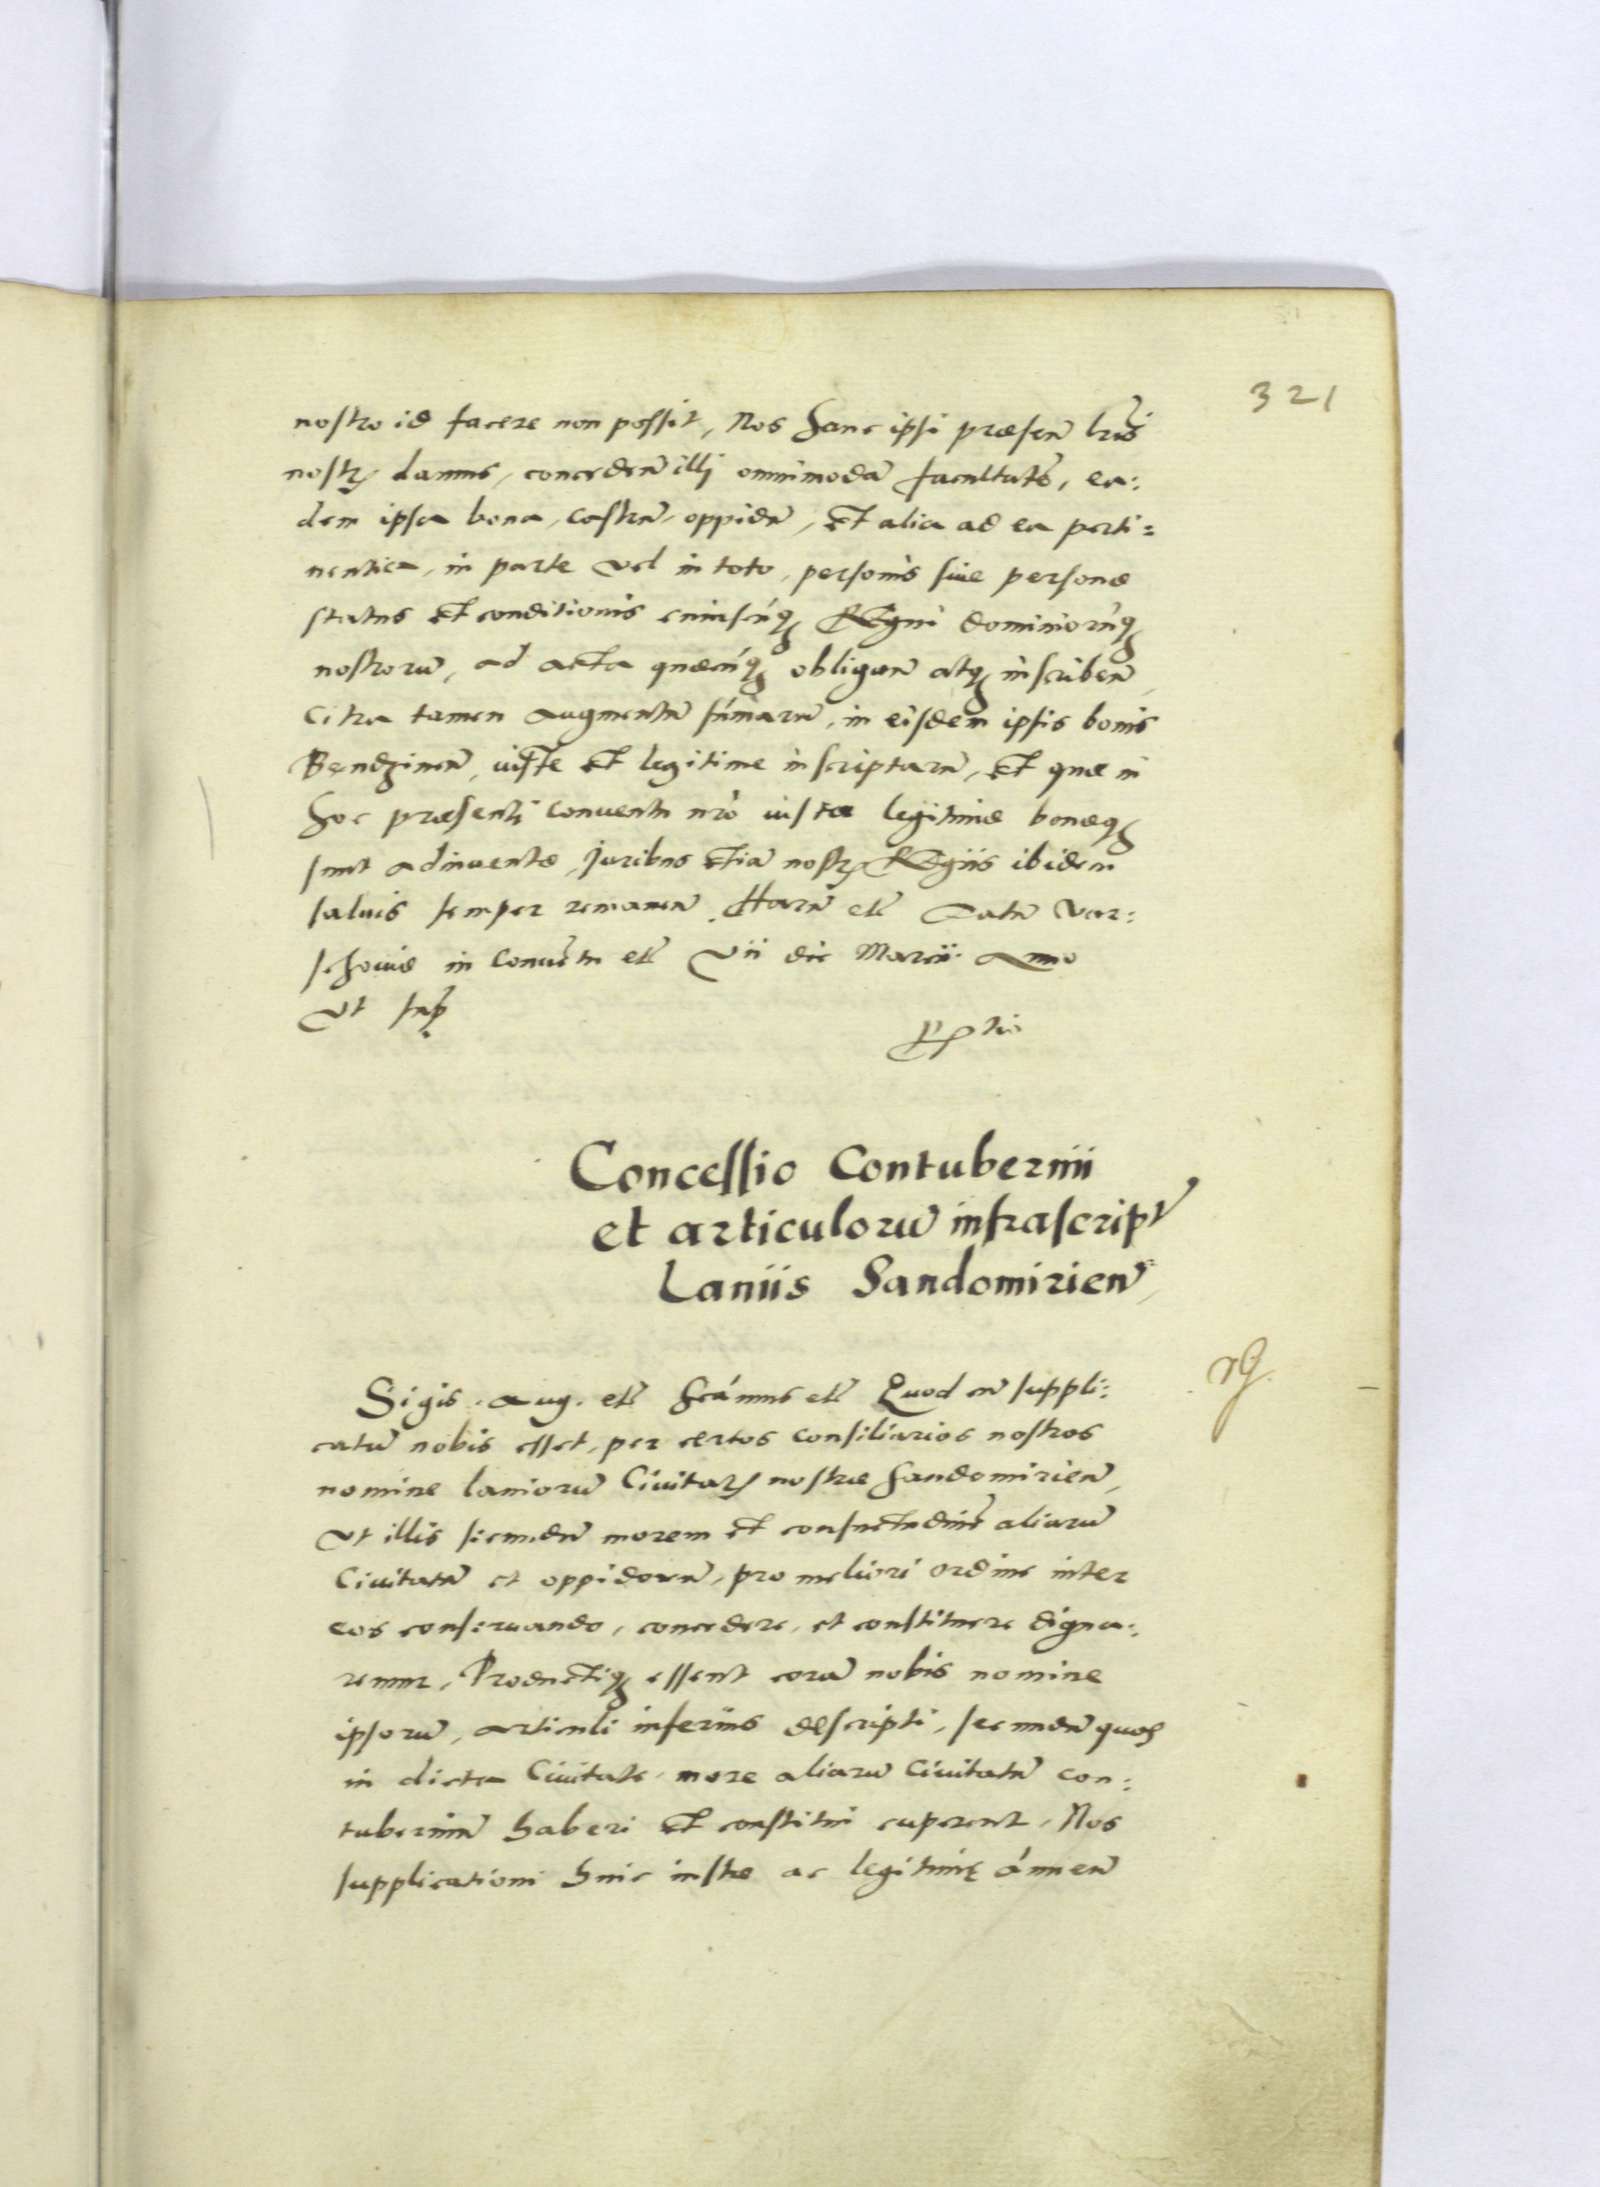 321
nostro id facere non possit, Nos hanc ipsi præsen̄ lr̄is
nostꝝ damus, conceden̄ illi omnimodā facultatē, ea:
dem ipsa bona, castrū, oppidū, Et alia ad ea perti=
nentia, in parte vel in toto, personis siue personæ
status Et conditionis cuiuscūqꝫ REgni dominiorūqꝫ
nostrorū, ad acta quæcūqꝫ obligan̄ atqꝫ inscriben̄,
Citra tamen augmentū sūmarū, in eisdem ipsis bonis
Bendzinen̄, iuste Et legitime inscriptarū, Et quæ in
hoc præsenti conuentu nr̄o iustæ legitimæ bonæqꝫ
sunt adinuentæ, Juribus Etiā nostꝝ REgiis ibidem
saluis semper remanen̄. Harū etc̄ Datū Var:
schouiæ in Conuētu etc̄ Vii die Marcii. Anno
Vt supꝫ
Concessio Contubernii
et articulorū infrascript
Laniis Sandomirien̄
Sigis. Aug. etc̄ Scámus etc̄ Quod cū suppli:
catū nobis esset, per certos consiliarios nostros
nomine laniorū Ciuitatꝭ nostræ Sandomirien̄,
Vt illis secundū morem Et consuetudinē aliarū
Ciuitatū et oppidorū, pro meliori ordine inter
eos conseruando, concedere, et constituere digna:
remur, Productiqꝫ essent corā nobis nomine
ipsorū, articuli inferius descripti, secundū quos
in dicta Ciuitate more aliarū Ciuitatū con:
tuberniū haberi Et constitui cuperent, Nos
supplicationi huic iustæ ac legitimę ánnuen̄